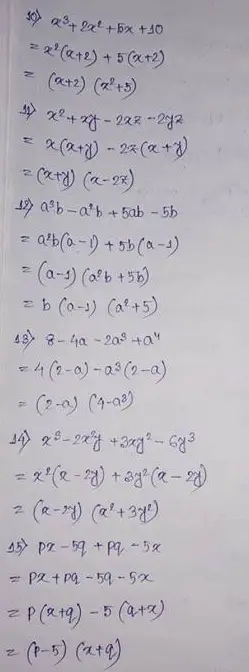 10) x³+2x²+5x+10
= x²(x+2) + 5(x+2)
= (x+2) (x²+5)
11) x²+xy-2xz-2yz
= x(x+y) - 2z(x+y)
= (x+y) (x-2z)
12) a³b-a²b+5ab-5b
= a²b(a-1) + 5b(a-1)
= (a-1) (a²b+5b)
= b (a-1) (a²+5)
13) 8-4a-2a³+a⁴
= 4(2-a)-a³(2-a)
= (2-a) (4-a³)
14) x³-2x²y+3xy²-6y³
= x²(x-2y) + 3y²(x-2y)
= (x-2y) (x²+3y²)
15) px-5q+pq-5x
= px+pq-5q-5x
= p(x+q) -5(q+x)
= (p-5) (x+q)